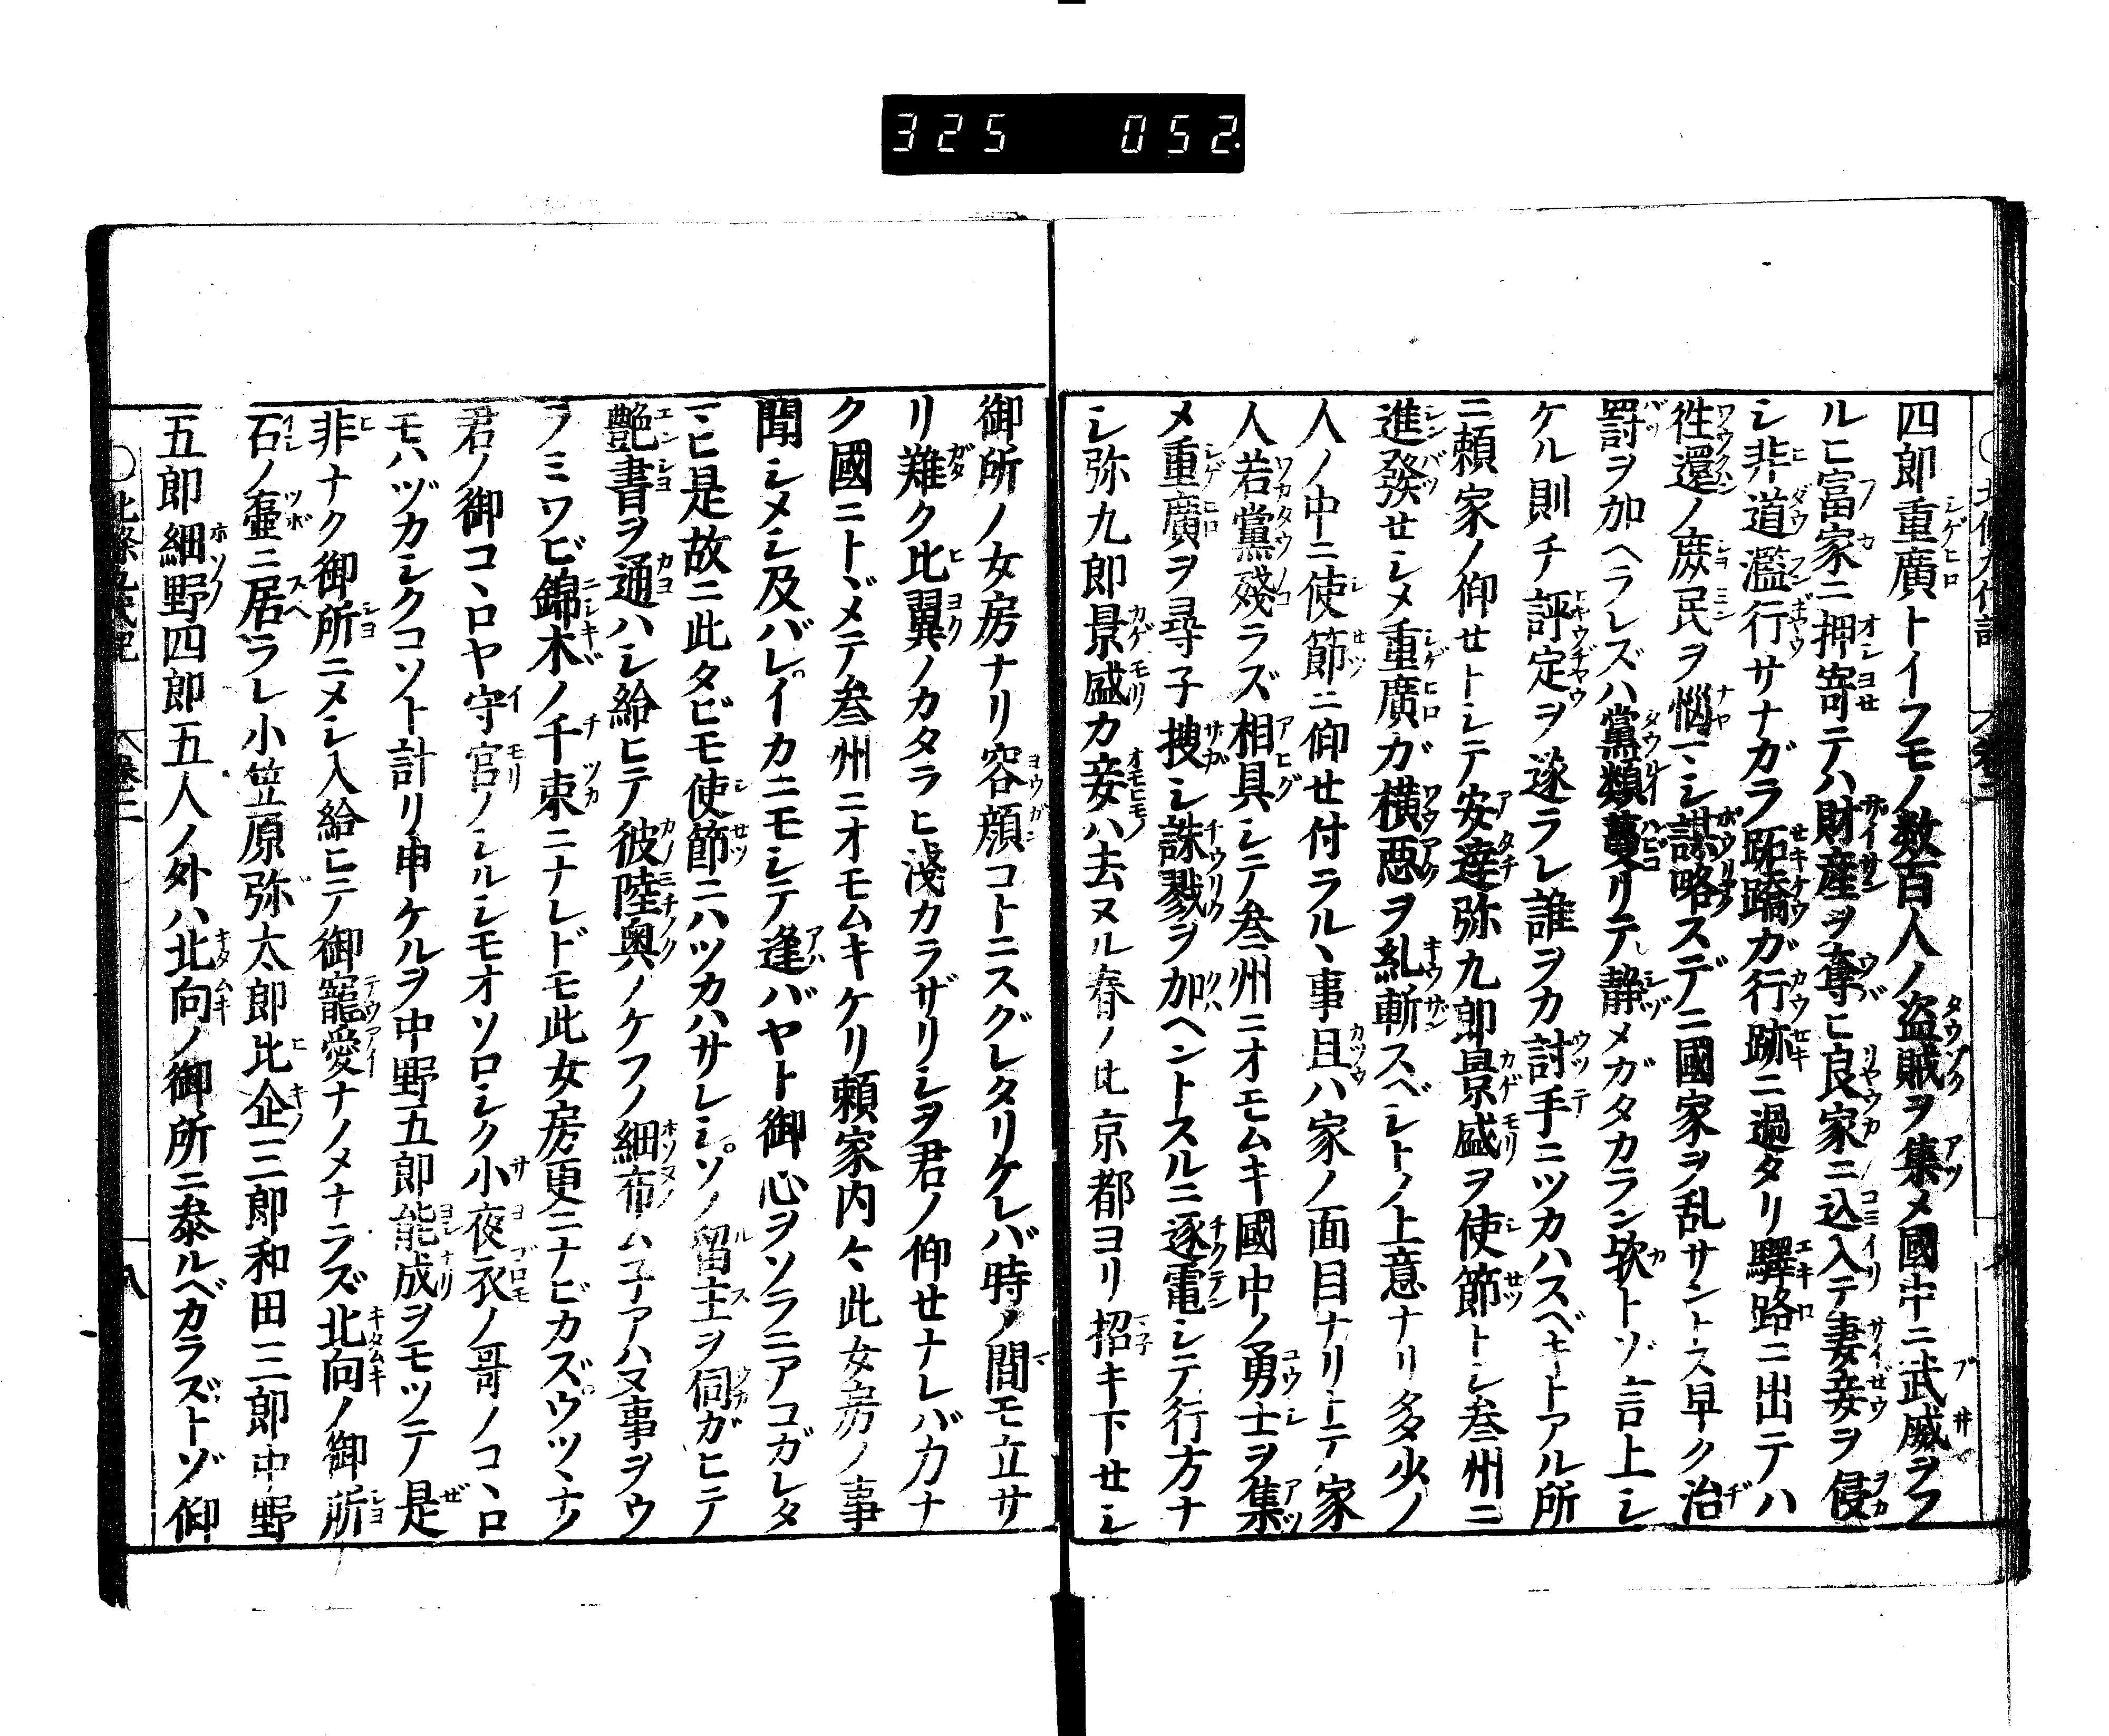 325 052.
四郎重廣トイフモノ数百人ノ盗賊ヲ集メ國中ニ武威ヲフ
ルヒ富家ニ押寄テハ財産ヲ奪ヒ良家ニ込入テ妻妾ヲ侵
シ非道濫行サナガラ跖蹻ガ行跡ニ過タリ驛路ニ出テハ
徃還ノ庶民ヲ惱マシ謀略スデニ國家ヲ乱サントス早ク治
罸ヲ加ヘラレズハ黨類蔓リテ静メガタカラン欤トゾ言上シ
ケル則チ評定ヲ遂ラレ誰ヲカ討手ニツカハスベキトアル所
ニ頼家ノ仰セトシテ安達弥九郎景盛ヲ使節トシ叁州ニ
進發セシメ重廣ガ横悪ヲ糺斬スベシトノ上意ナリ多少ノ
人ノ中ニ使節ニ仰セ付ラルヽ事且ハ家ノ面目ナリトテ家
人若黨殘ラズ相具シテ叁州ニオモムキ國中ノ勇士ヲ集
メ重廣ヲ尋子捜シ誅戮ヲ加ヘントスルニ逐電シテ行方ナ
シ弥九郎景盛カ妾ハ去ヌル春ノ比京都ヨリ招キ下セシ
御所ノ女房ナリ容顔コトニスグレタリケレバ時ノ間モ立サ
リ難ク比翼ノカタラヒ淺カラザリシヲ君ノ仰セナレバ力ナ
ク國ニトヾメテ叁州ニオモムキケリ頼家内々此女房ノ事
聞シメシ及バレイカニモシテ逢バヤト御心ヲソラニアコガレタ
マヒ是故ニ此タビモ使節ニハツカハサレシソノ留主ヲ伺ガヒテ
艶書ヲ通ハシ給ヒテ彼陸奥ノケフノ細布ム子アハヌ事ヲウ
ラミワビ錦木ノ千束ニナレドモ此女房更ニナビカズウツヽナノ
君ノ御コヽロヤ守宮ノシルシモオソロシク小夜衣ノ哥ノコヽロ
モハヅカシクコソト計リ申ケルヲ中野五郎能成ヲモツテ是
非ナク御所ニメシ入給ヒテ御寵愛ナノメナラズ北向ノ御所
石ノ壷ニ居ラレ小笠原弥太郎比企三郎和田三郎中野
五郎細野四郎五人ノ外ハ北向ノ御所ニ叅ルベカラズトゾ仰
○北條九代記 卷二 八